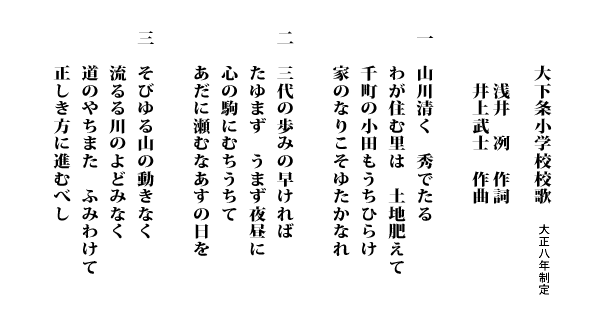 大下条小学校校歌
大正八年制定
浅井 冽 作詞
井上武士 作曲
一 山川清く 秀でたる
わが住む里は 土地肥えて
千町の小田もうちひらけ
家のなりこそゆたかなれ
二 三代の歩みの早ければ
たゆまず うまず夜昼に
心の駒にむちうちて
あだに瀬むなあすの日を
三 そびゆる山の動きなく
流るる川のよどみなく
道のやちまた ふみわけて
正しき方に進むべし